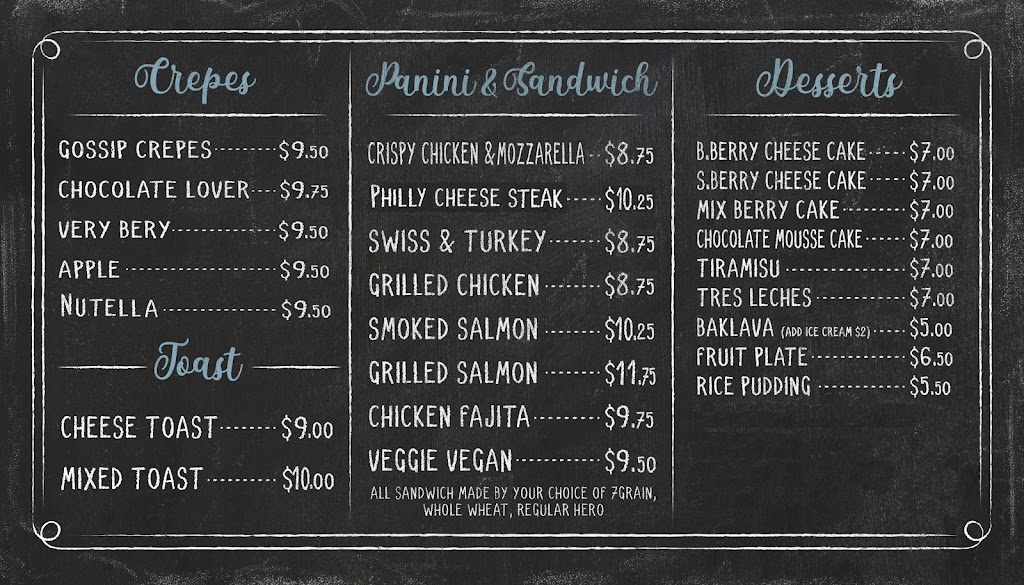 Crepes
GOSSIP CREPES $9.50
CHOCOLATE LOVER $9.75
VERY BERY $9.50
APPLE $9.50
NUTELLA $9.50
Toast
CHEESE TOAST $9.00
MIXED TOAST $10.00
Panini & Sandwich
CRISPY CHICKEN & MOZZARELLA $8.75
PHILLY CHEESE STEAK $10.25
SWISS & TURKEY $8.75
GRILLED CHICKEN $8.75
SMOKED SALMON $10.25
GRILLED SALMON $11.75
CHICKEN FAJITA $9.75
VEGGIE VEGAN $9.50
ALL SANDWICH MADE BY YOUR CHOICE OF 7GRAIN,
WHOLE WHEAT, REGULAR HERO
Desserts
B.BERRY CHEESE CAKE $7.00
S.BERRY CHEESE CAKE $7.00
MIX BERRY CAKE $7.00
CHOCOLATE MOUSSE CAKE $7.00
TIRAMISU $7.00
TRES LECHES $7.00
BAKLAVA (ADD ICE CREAM $2) $5.00
FRUIT PLATE $6.50
RICE PUDDING $5.50